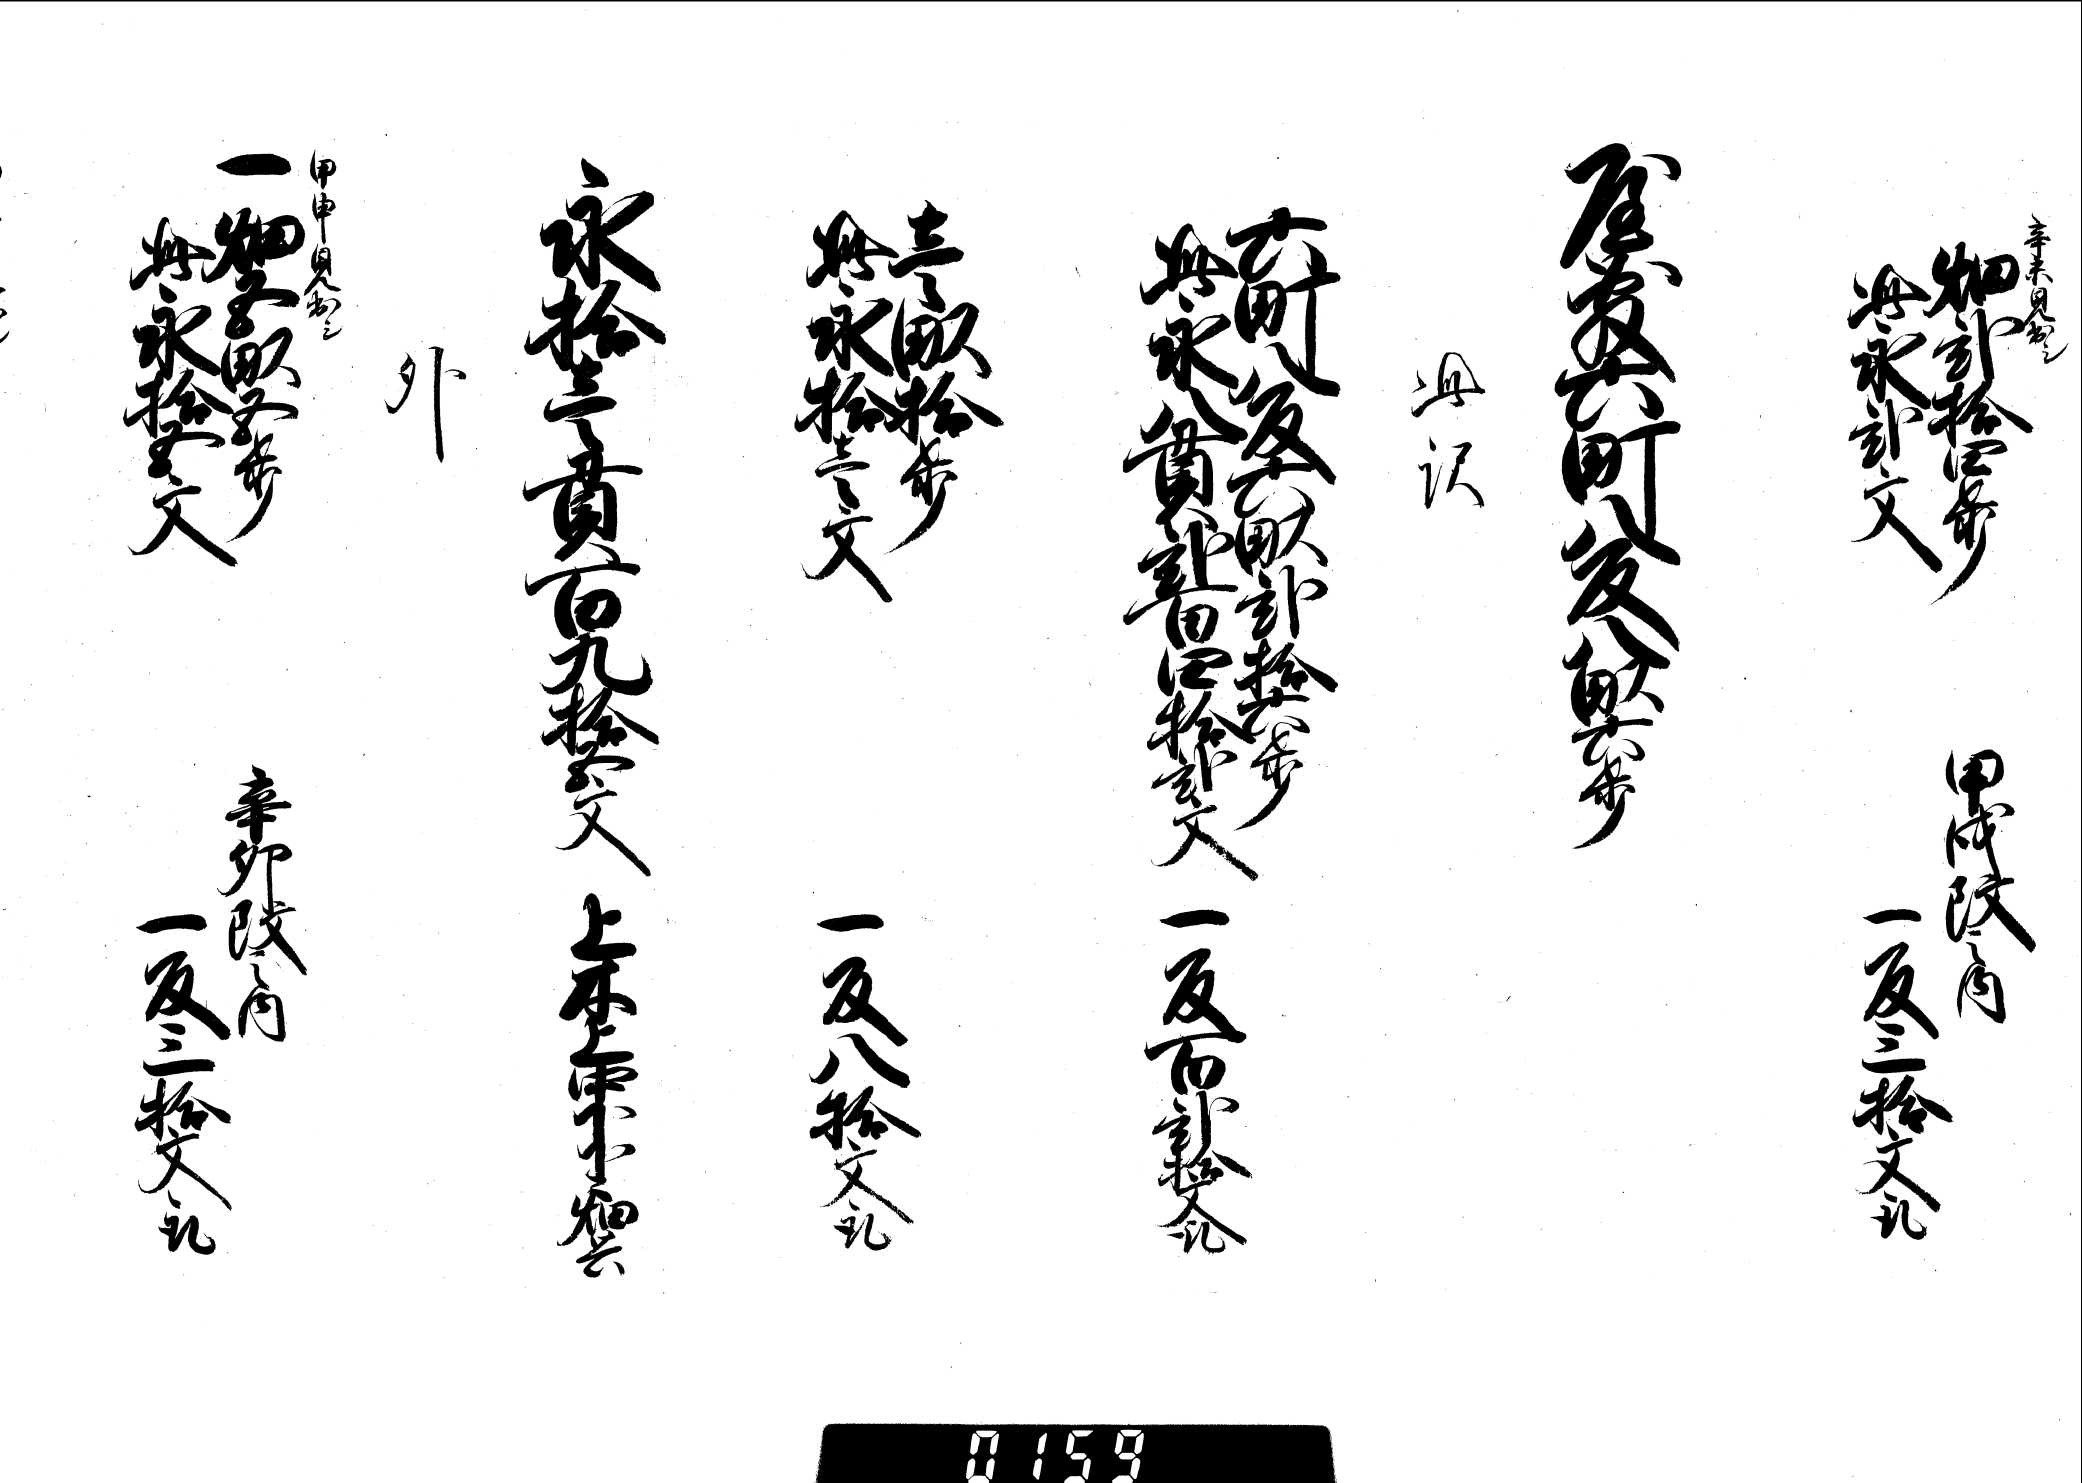 辛未見出之
畑弐拾四歩 甲戌改之内
此永弐文 一反三拾文取
屋敷六町八反八畝六歩
此訳
六町八反六畝弐拾六歩
此永八貫弐百四拾弐文 一反百弐拾文取
壱畝拾歩
此永拾壱文 一反八拾文取
永拾壱貫百九拾五文 上木上中下畑共
外
甲申見出之
一畑五畝五歩 辛卯改之内
此永拾五文 一反三拾文取
0159